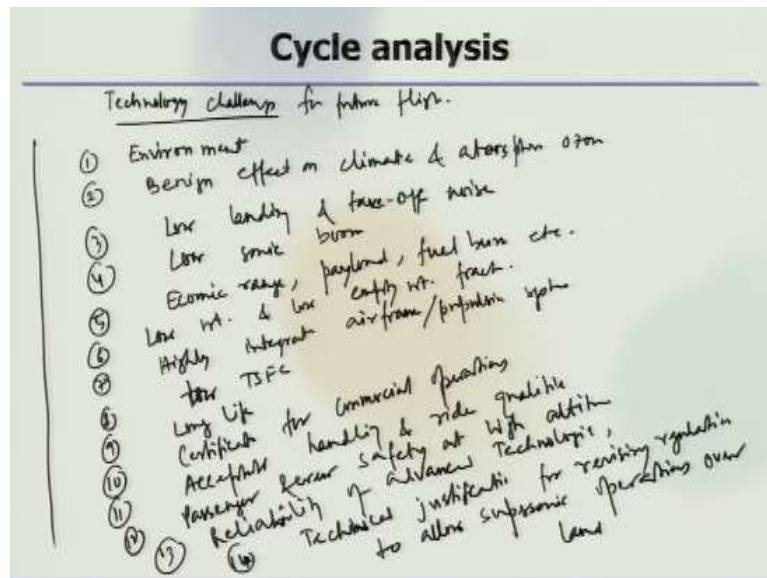 Cycle analysis
Technology challenges for future flight.
① Environment
② Benign effect on climate & atmosphere ozone
③ Low landing & take-off noise
④ Low sonic boom
⑤ Ecomic range, payload, fuel burn etc.
⑥ Low wt. & low empty wt. fract.
⑦ Highly integrate airframe/propulsion system
⑧ Low TSFC
⑨ Long life
⑩ Certificate for commercial operations
⑪ Acceptable handling & ride qualities
⑫ Passenger safety at high altitude
⑬ Reliability of advanced Technologies,
⑭ Technical justification for revising regulation
to allow supersonic operations over
land